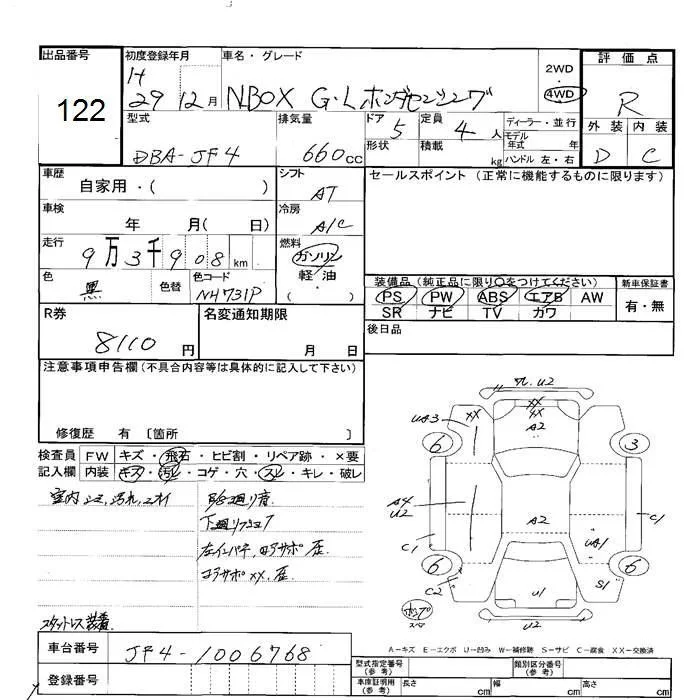 出品番号 初度登録年月 車名・グレード 2WD・4WD 評価点
122 H 29 12月 NBOX G・Lホンダセンシング R
型式 排気量 ドア 定員 ディーラー・並行 外装 内装
DBA-JF4 660cc 5 4人 モデル年式 年 D C
形状 積載 kg ハンドル 左・右
車歴 シフト セールスポイント (正常に機能するものに限ります)
自家用・( ) AT
車検 冷房
年 月( 日) A/C
走行 燃料
9万3千908km ガソリン
色 色替 色コード 軽油
黒 NH731P ( )
装備品 (純正品に限り○をつけてください) 新車保証書
PS PW ABS エアB AW 有・無
SR ナビ TV カワ
R券 名変通知期限 後日品
8110円 月 日
注意事項申告欄 (不具合内容等は具体的に記入して下さい)
修復歴 有 〔箇所 〕
検査員 FW キズ・飛石・ヒビ割・リペア跡・×要
記入欄 内装 キズ・汚レ・コゲ・穴・スレ・キレ・破レ
室内シミ、汚れ、ニオイ
下廻り
左インパネ、コアサポ 歪
コアサポXX、歪
スタットレス装着
U2
XX
XX
UA3 XX A2
6 3
A4
U2 A2
C1 UA1 C1
6 6
C2 S1
U1
U2
A-キズ E-エクボ U-凹み W-補修跡 S-サビ C-腐食 XX-交換済
車台番号 JF4-1006768
登録番号
型式指定番号 (参考) 類別区分番号 (参考)
車庫証明用 (参考) 長さ cm 幅 cm 高さ cm